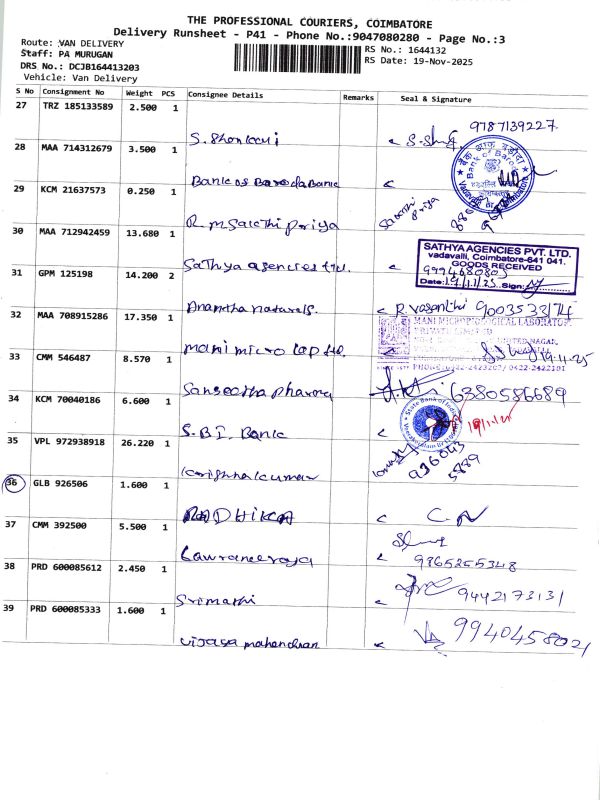 THE PROFESSIONAL COURIERS, COIMBATORE
Delivery Runsheet - P41 - Phone No.:9047080280 - Page No.:3
Route: VAN DELIVERY
RS No.: 1644132
Staff: PA MURUGAN
RS Date: 19-Nov-2025
DRS No.: DCJB164413203
Vehicle: Van Delivery
S No Consignment No Weight PCS Consignee Details Remarks Seal & Signature
27 TRZ 185133589 2.500 1
9787139227
28 MAA 714312679 3.500 1
Bank of Baroda Bank
29 KCM 21637573 0.250 1
R.m Sakthi priya
Sakthi Priya
30 MAA 712942459 13.680 1
Sathya agencies
SATHYA AGENCIES PVT. LTD.
vadavalli, Coimbatore-641 041.
GOODS RECEIVED
Date: 19/11/25 Sign:
31 GPM 125198 14.200 2
Anantha naturals.
R. Vasanthi 9003533174
32 MAA 708915286 17.350 1
mani micro lap ltd.
MANI MICROBIOLOGICAL LABORATORY
PRIVATE LIMITED
19.11.25
33 CMM 546487 8.570 1
6380586689
34 KCM 70040186 6.600 1
S.B.I. Bank
State Bank of India
35 VPL 972938918 26.220 1
Krishnakumar
936043
5889
36 GLB 926506 1.600 1
RADHIKA
C. N
37 CMM 392500 5.500 1
9865255348
38 PRD 600085612 2.450 1
Srimathi
9442173131
39 PRD 600085333 1.600 1
Vijaya mahendran
9940458021